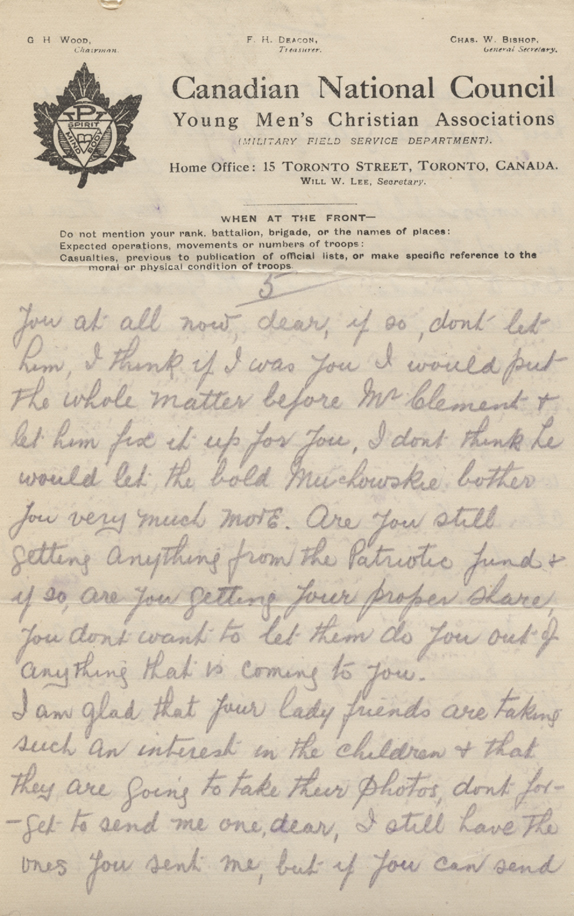 G H WOOD,
Chairman.
F. H. DEACON,
Treasurer.
CHAS. W. BISHOP,
General Secretary.
SPIRIT
MIND
BODY
Canadian National Council
Young Men's Christian Associations
(MILITARY FIELD SERVICE DEPARTMENT).
Home Office: 15 TORONTO STREET, TORONTO, CANADA.
WILL W. LEE, Secretary.
WHEN AT THE FRONT—
Do not mention your rank, battalion, brigade, or the names of places:
Expected operations, movements or numbers of troops:
Casualties, previous to publication of official lists, or make specific reference to the
moral or physical condition of troops
5
You at all now, dear, if so, dont let
him, I think if I was you I would put
the whole matter before Mr Clement &
let him fix it up for you, I dont think he
would let the bold Muchowskie bother
you very much more. Are you still
getting anything from the Patriotic fund &
if so, are you getting your proper share,
you dont want to let them do you out of
anything that is coming to you.
I am glad that your lady friends are taking
such an interest in the children & that
they are going to take their photos, dont for-
-get to send me one, dear, I still have the
ones you sent me, but if you can send